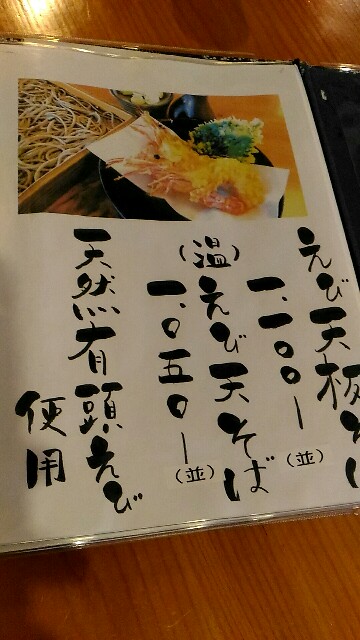 えび天板そ
一.一〇〇ー
（並）
（温）えび天そば
一.〇五〇ー
（並）
天然有頭えび
使用